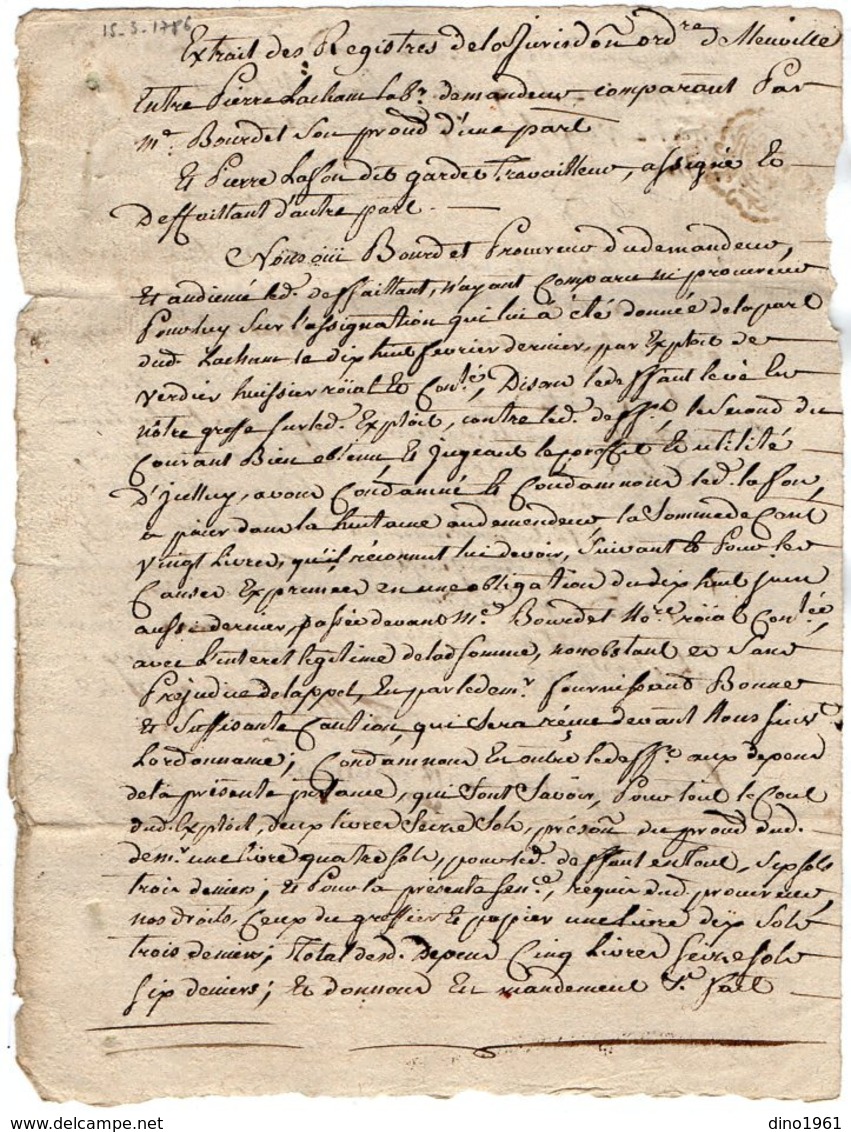 15-3-1786
Extrait des Registres de la Jurisdõn ord.re de Neuville
Entre Pierre Lacham lab.r demandeur, comparant Par
M.e Bourdet son procũd d'une part
Et Pierre Lafon dit gardet Travailleur, assigné Et
Deffaillant d'autre part. —
Nous oüi Bourdet Procureur du demandeur,
Et audiencé led. deffaillant, n'ayant comparu ni procureur
Pour luy sur l'assignation qui lui à été donnée de la part
dud. Lacham le dix huit fevrier dernier, par Exploit de
verdier huissier röial Et Con.lé, Disons le deffaut levé En
nôtre greffe sur led. Exploit, contre led. deff.t le second du
Courant Bien obtenu Et jugeant le proffit Et utilité
D'jcelluy, avons Condamné Et Condamnons led. lafon,
a paier dans la huitaine au demandeur la Somme de Cent
vingt livres, qu'il réconnut lui devoir, Suivant Et Pour les
Causes Exprimées en une obligation du dix huit juin
aussi dernier, passée devant M.e Bourdet No.re röial Con.lée,
avec L'interet legitime de lad somme, nonobstant Et Sans
Préjudice de lappel, En par le dem.r fournissant Bonne
Et Suffisante Caution, qui Sera réçüe devant Nous suiv.t
Lordonnance; Condamnons En outre led deff.t aux depens
de la présente jnstance, qui Sont Savoir, Pour tout le Cout
dud. Exploit, deux livres Seize Sols, présõn du procũd dud.
dem.r une livre quatre sols, pour led. deffaut en Tout, Six sols
trois deniers; Et Pour la présente sen.ce, requis dud. procureur,
nos droits, Ceux du greffier Et papier une livre dix Sols
trois deniers; Total desd. depens Cinq Livres seize sols
six deniers; Et donnons En mandement S.r fait —
dino1961